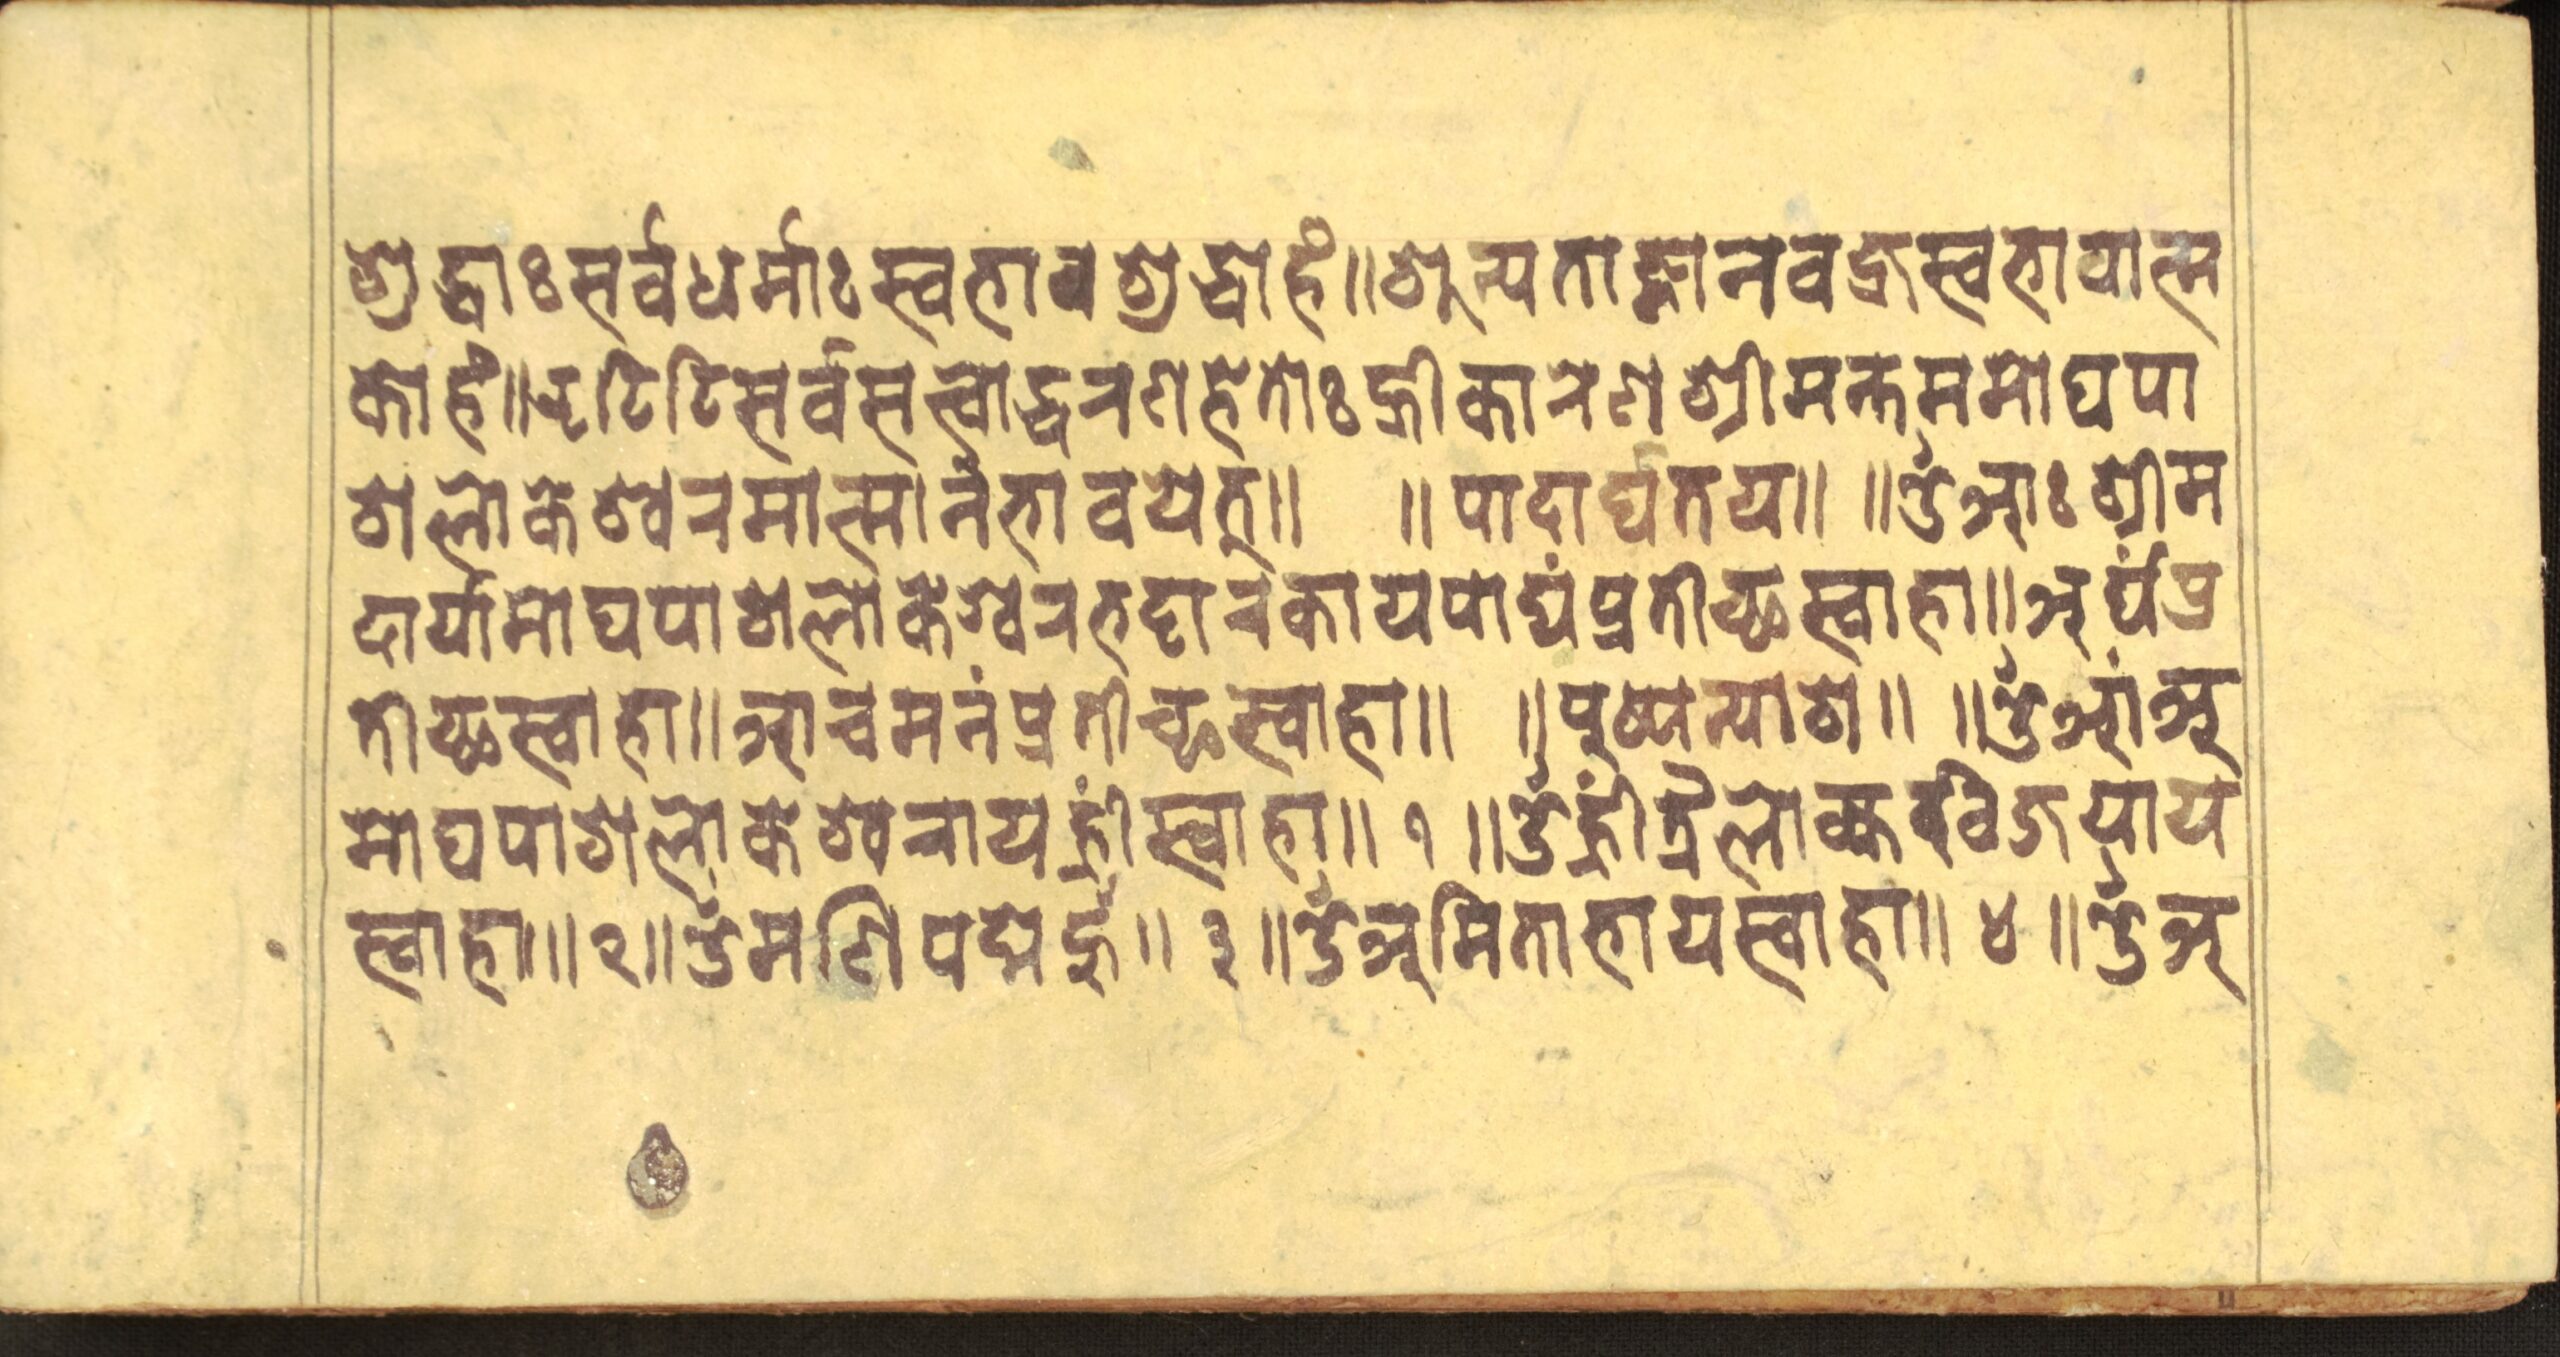 शुद्धाः सर्वधर्माः स्वभावशुद्धोहं॥ शून्यताज्ञानवज्रस्वभावात्म
कोहं॥ झटिटि सर्वसत्वोद्धरणहेतोः ह्रीकारेण श्रीमन्तममोघपा
शलोकेश्वरमात्मानं भावयेत्॥ ॥ पादार्घतय॥ ॥ ॐ आः श्रीम
दार्यामोघपाशलोकेश्वरभट्टारकाय पाद्यं प्रतीच्छ स्वाहा॥ अर्घं प्र
तीच्छ स्वाहा॥ आचमनं प्रतीच्छ स्वाहा॥ ॥ पुष्पन्याश॥ ॥ ॐ आं अ
मोघपाशलोकेश्वराय ह्रीं स्वाहा॥ १ ॥ ॐ ह्रीं त्रैलोक्यविजयाय
स्वाहा॥ २॥ ॐ मणिपद्मे हूं॥ ३ ॥ ॐ अमिताभाय स्वाहा॥ ४ ॥ ॐ अ